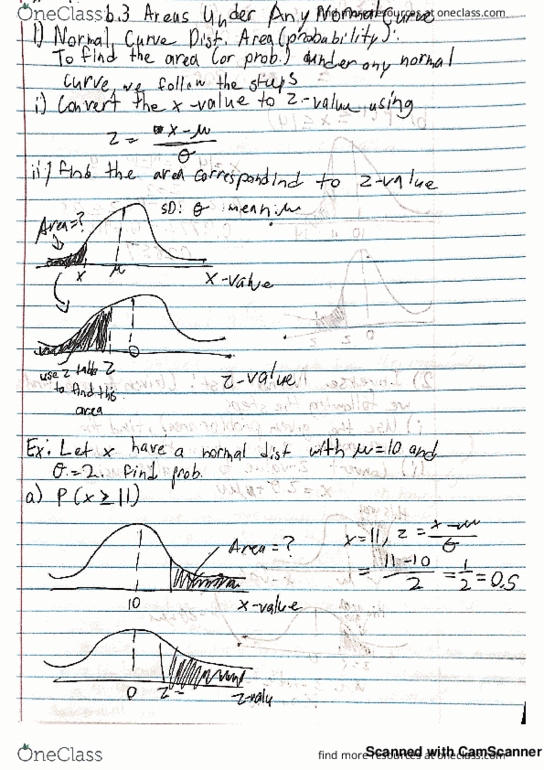 OneClass
find more resources at oneclass.com
6.3 Areas Under Any Normal Curve
1) Normal Curve Dist. Area (probability):
To find the area (or prob.) under any normal
curve, we follow the steps
i) Convert the x-value to z-value using
z = x - μ
σ
ii) find the area correspondind to z-value
Area=?
SD: σ mean: μ
x μ
x-value
z 0
use z table
to find this
area
z-value
Ex: Let x have a normal dist with μ=10 and
σ=2. find prob.
a) P(x ≥ 11)
Area=?
x=11, z = x-μ
σ
= 11-10
2 = 1
2 = 0.5
10
x-value
0 z=
z-valu
OneClass
find more resources at oneclass.com
Scanned with CamScanner